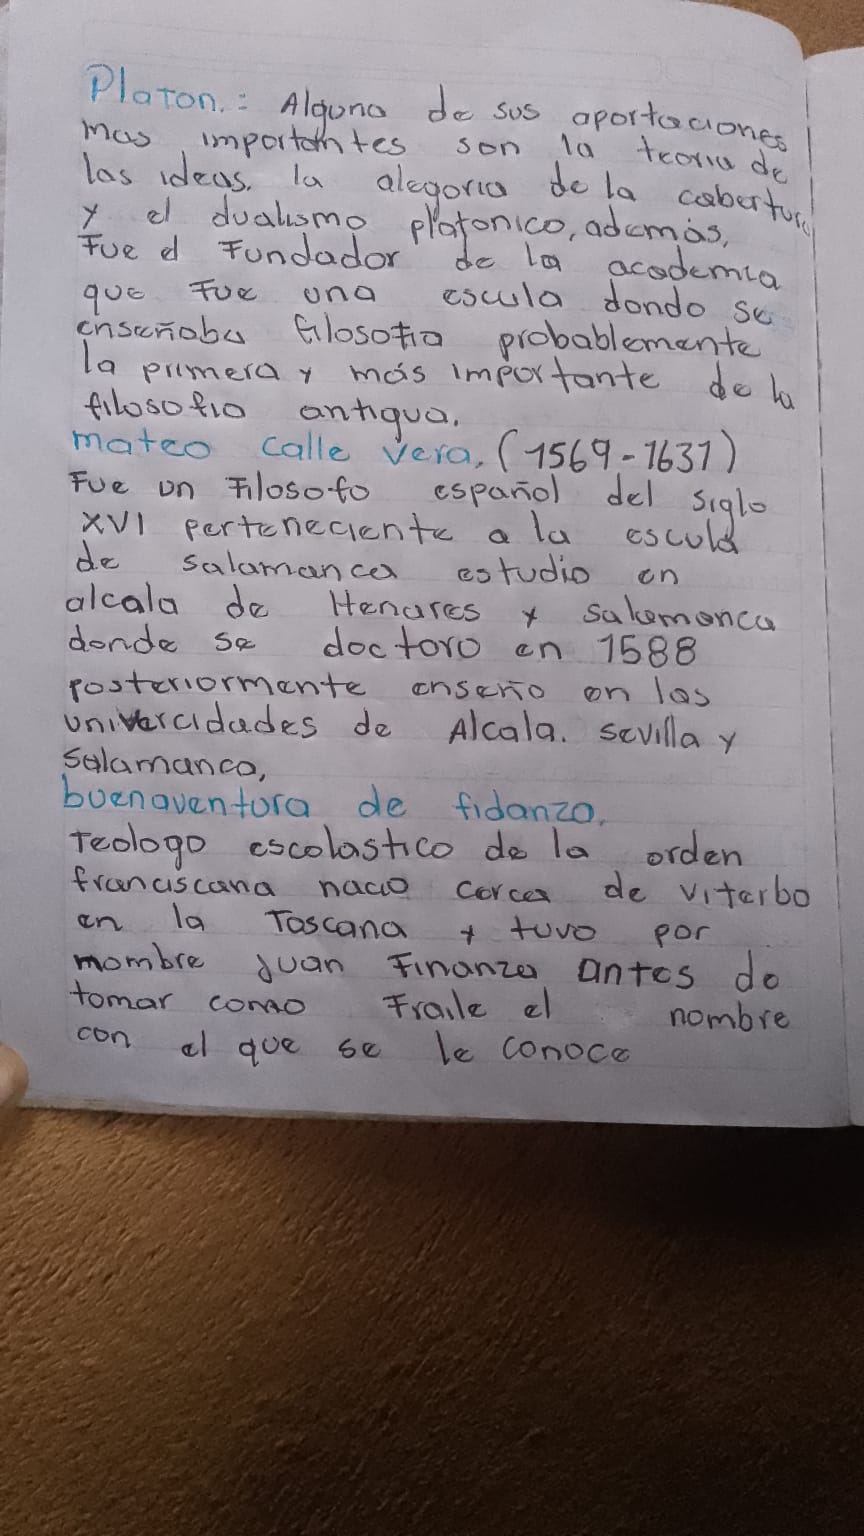 Platon.: Alguna de sus aportaciones
mas importantes son la teoria de
las ideas. la alegoria de la cabertura
y el dualismo platonico, además,
Fue el Fundador de la academia
que Fue una escula dondo se
enseñaba filosofia probablemente
la primera y más importante de la
filosofio antigua.
mateo calle vera. (1569-1631)
Fue un Filosofo español del siglo
XVI perteneciente a la escula
de salamanca estudio en
alcala de Henares y salamanca
donde se doctoro en 1588
posteriormente enseño en las
univercidades de Alcala. Sevilla y
Salamanca,
buenaventura de fidanzo.
Teologo escolastico de la orden
franciscana nacio cerca de viterbo
en la Toscana y tuvo por
mombre Juan Finanza antes de
tomar como Fraile el nombre
con el que se le conoce